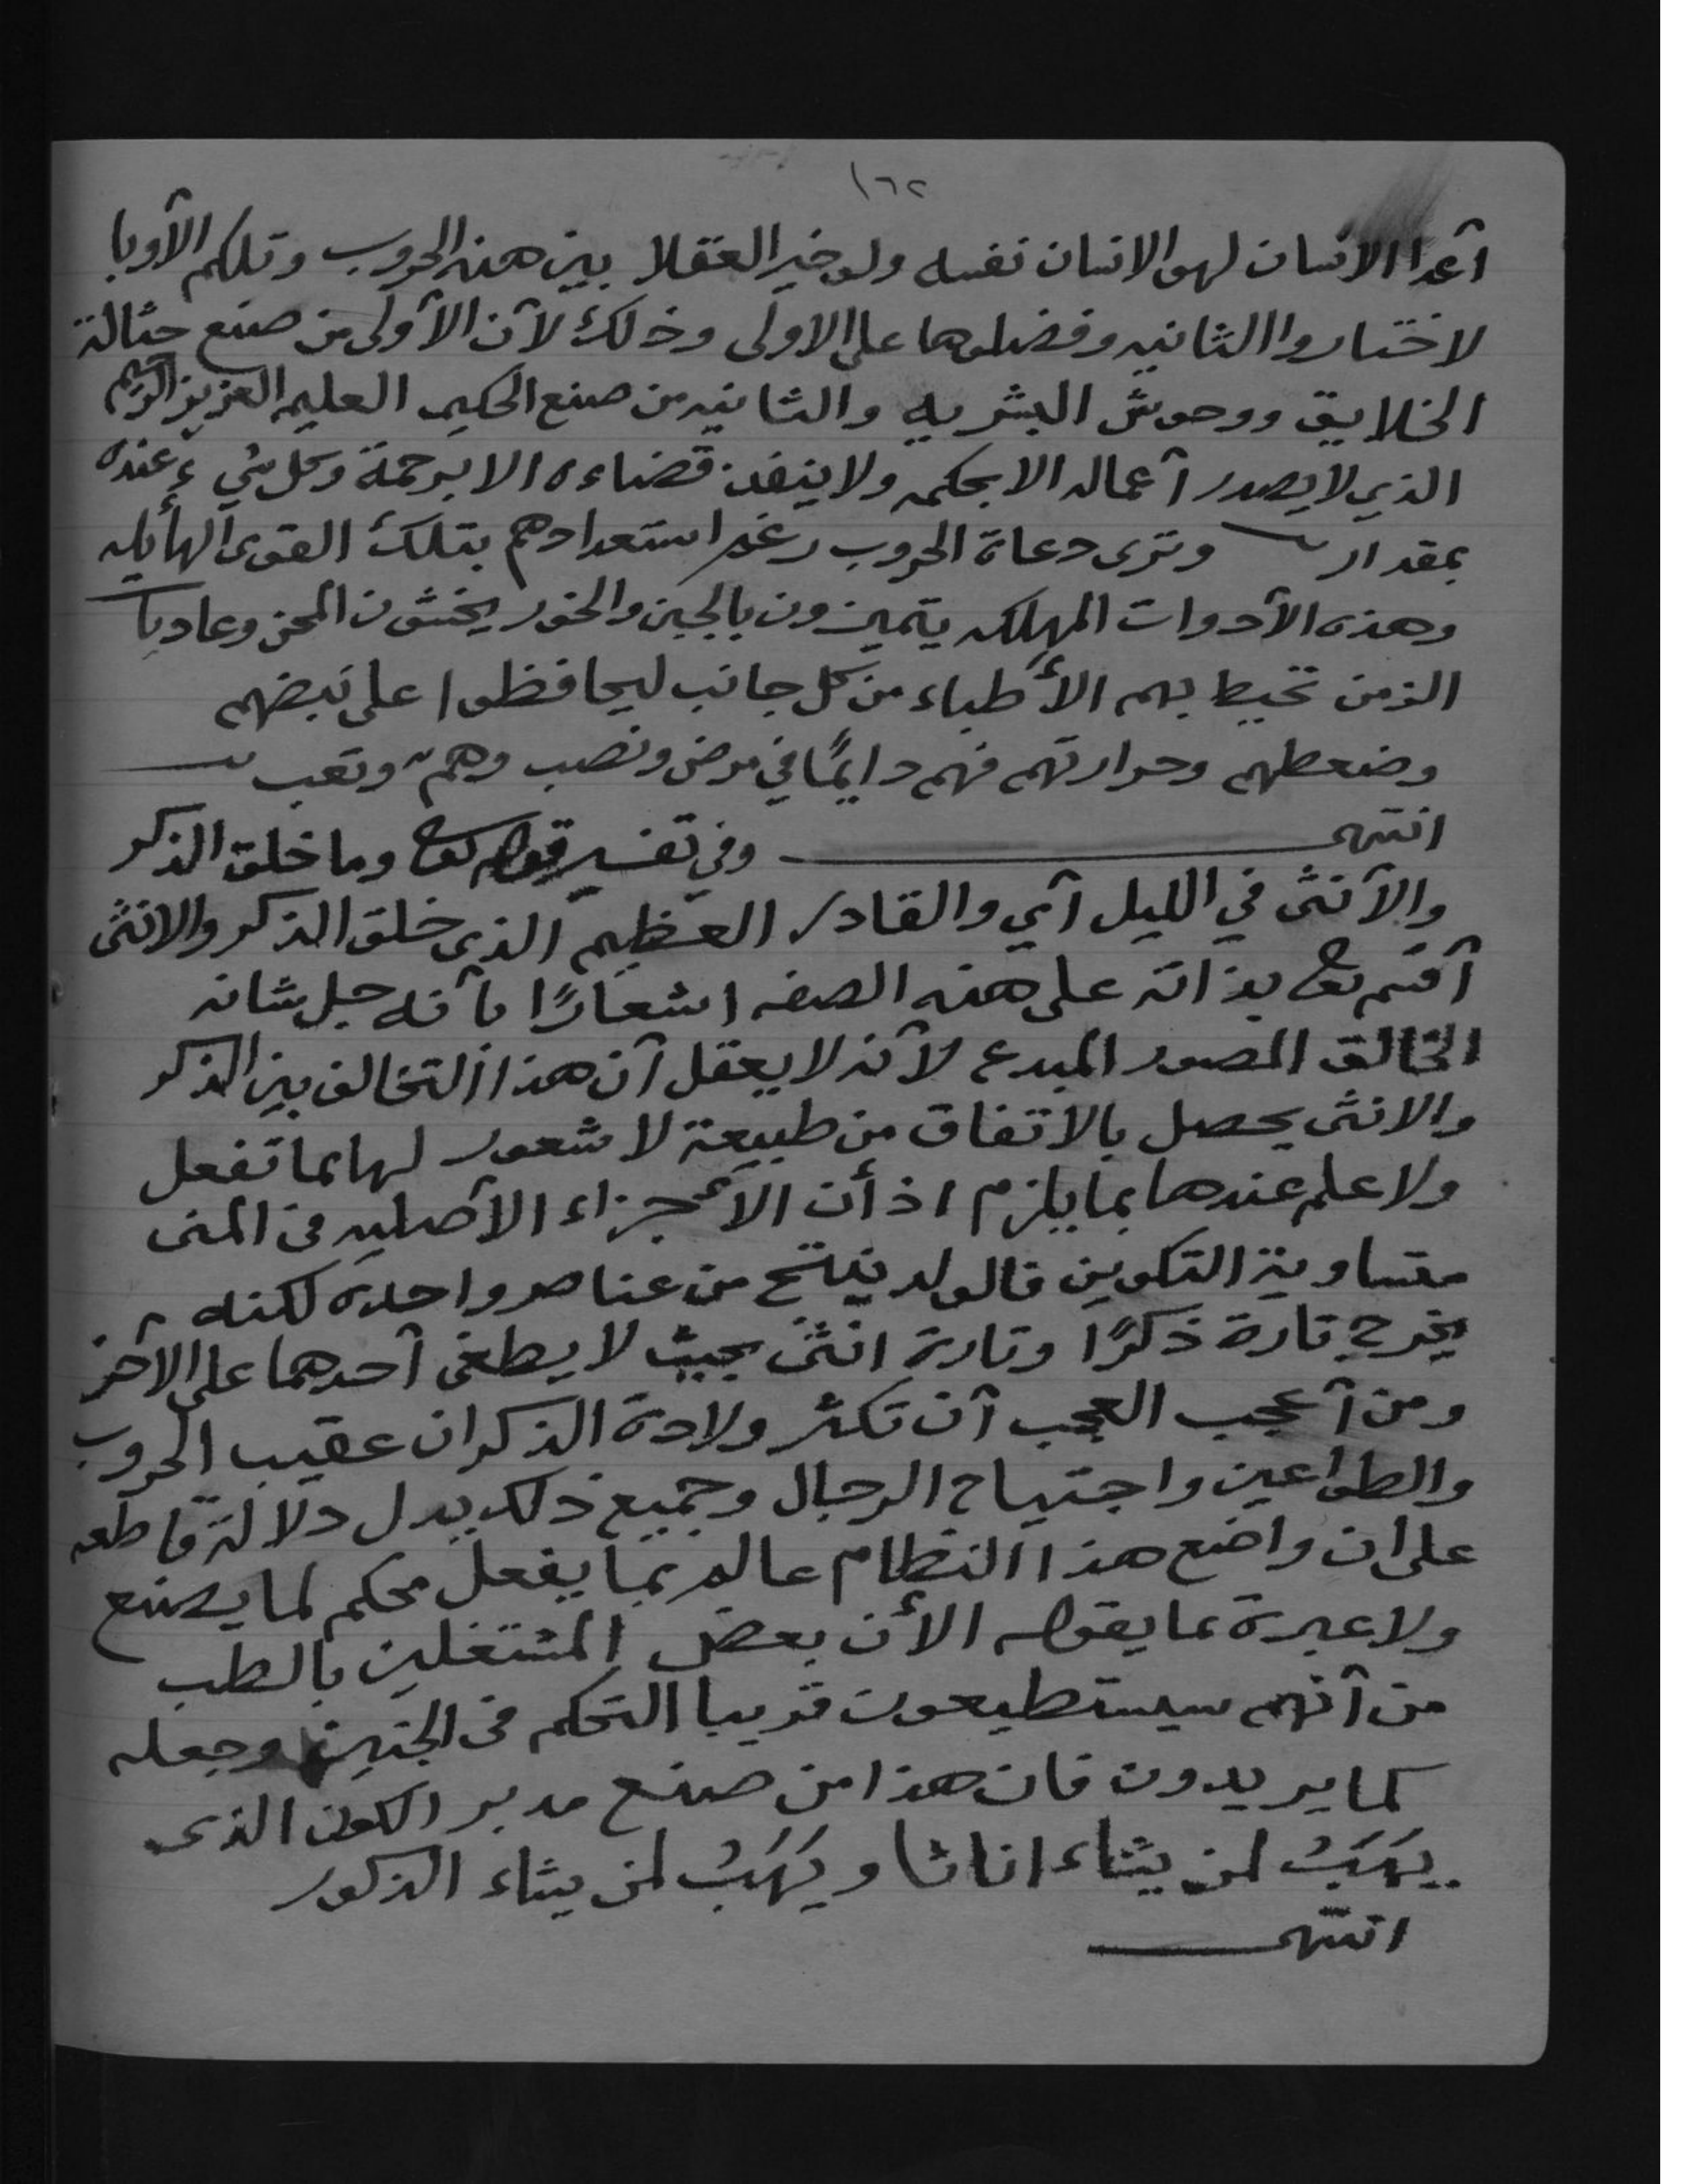 ١٦٢
أعدا الانسان لهو الانسان نفسه ولو خير العقلا بين هذه الحروب وتلكم الأوبا
لاختاروا الثانيه وفضلوها على الاولى وذلك لأن الأولى من صنع حثالة
الخلايق ووحوش البشريه والثانيه من صنع الحكيم العليم العزيز الرحيم
الذي لا يصدر أعماله الا بحكمه ولا ينفذ قضاءه الا برحمة وكل شيء عنده
بمقدار وترى دعاة الحروب رغم استعدادهم بتلك القوى الهأيله
وهذه الأدوات المهلكه يتميزون بالجبن والخور يخشون المحن وعاديات
الزمن تحيط بهم الأطباء من كل جانب ليحافظوا على نبضهم
وضعطهم وحرارتهم فهم دايمًا في مرض ونصب وهمّ وتعب
انتهى وفي تفسير قوله تعالى وما خلق الذكر
والأنثى في الليل أي والقادر العظيم الذى خلق الذكر والانثى
أقسم تعالى بذاته على هذه الصفه اشعارًا بأنه جل شانه
الخالق المصور المبدع لأنه لا يعقل أن هذا التخالف بين الذكر
والانثى يحصل بالاتفاق من طبيعة لا شعور لها بما تفعل
ولا علم عندها بما يلزم اذ أن الأجزاء الأصليه في المنى
متساوية التكوين فالولد ينتج من عناصر واحده لكنه
يخرج تارة ذكرًا وتارة انثى بحيث لا يطغى أحدهما على الآخر
ومن أعجب العجب أن تكثر ولادة الذكران عقيب الحروب
والطواعين واجتياح الرجال وجميع ذلك يدل دلالة قاطعه
على ان واضع هذا النظام عالم بما يفعل محكم لما يصنع
ولا عبرة بما يقوله الأن بعض المشتغلين بالطب
من أنهم سيستطيعون قريبا التحكم في الجنين وجعله
كما يريدون فان هذا من صنع مدبر الكون الذى
يَهَبُ لمن يشاء اناثا ويَهَبُ لمن يشاء الذكور
انتهى